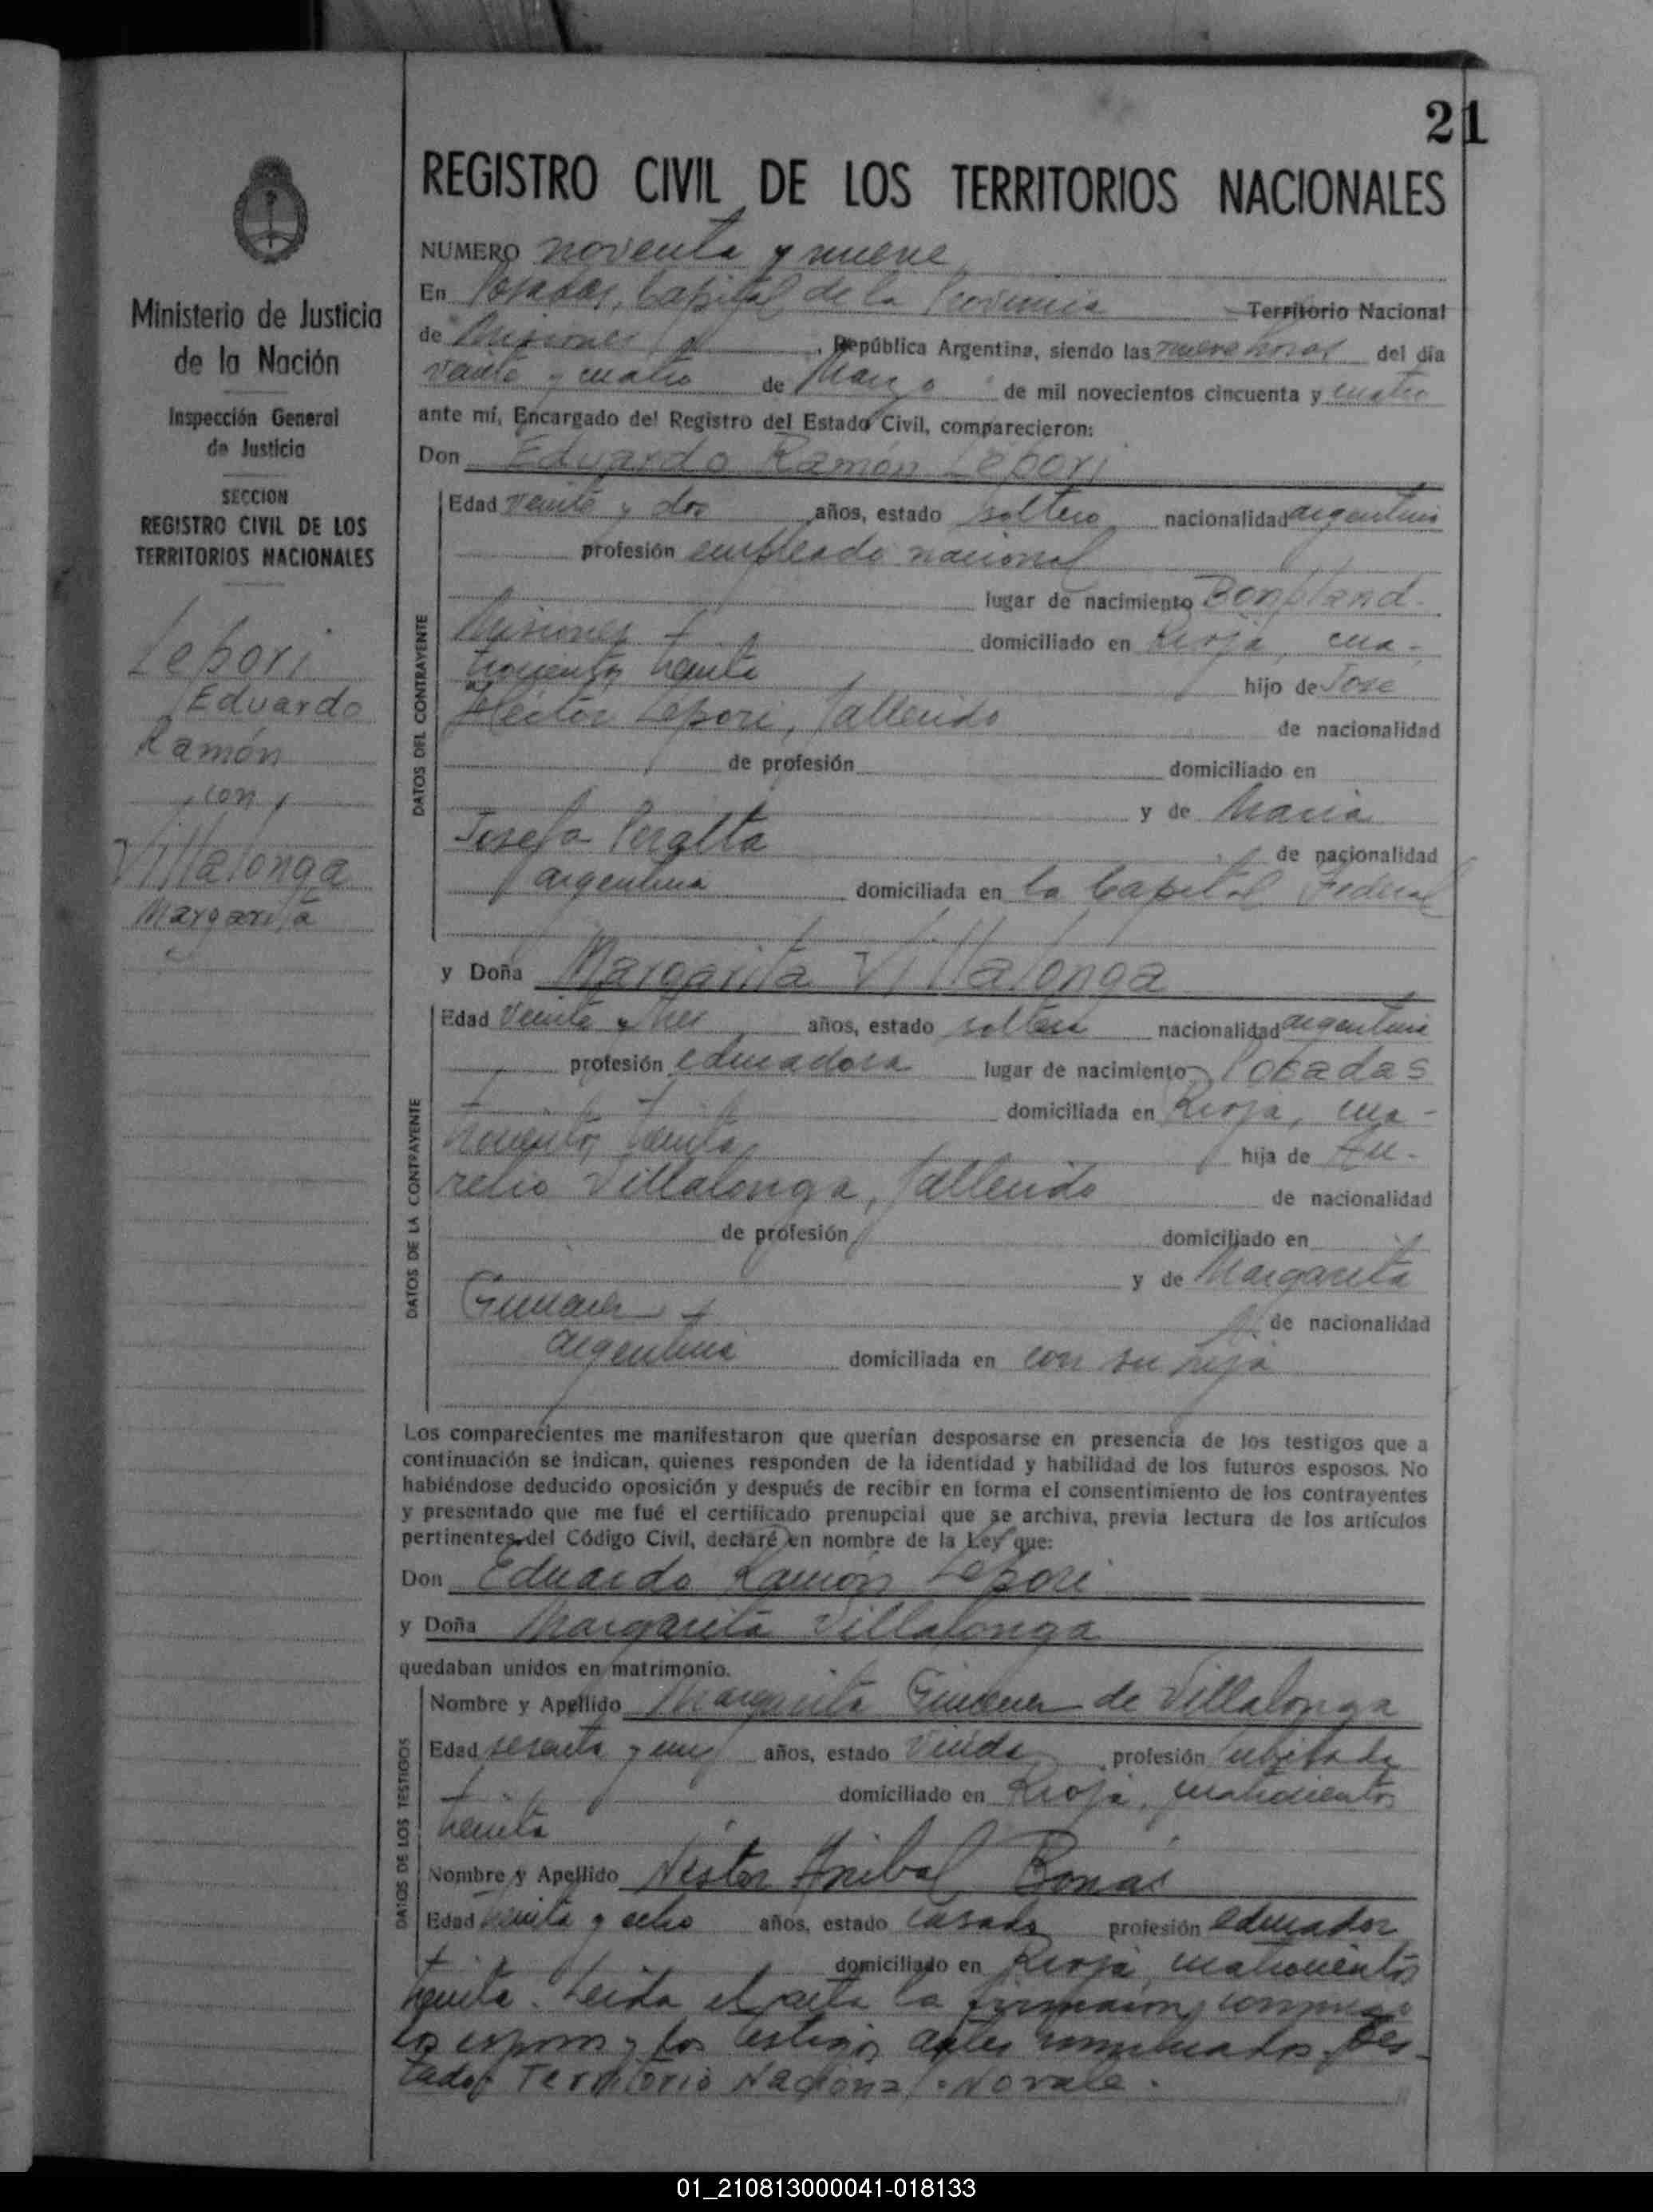 21
REGISTRO CIVIL DE LOS TERRITORIOS NACIONALES
Ministerio de Justicia
de la Nación
Inspección General
de Justicia
SECCION
REGISTRO CIVIL DE LOS
TERRITORIOS NACIONALES
Lepori
Eduardo
Ramón
con
Villalonga
Margarita
NUMERO noventa y nueve
En Posadas, Capital de la Provincia Territorio Nacional
de Misiones , República Argentina, siendo las nueve horas del día
veinte y cuatro de Marzo de mil novecientos cincuenta y cuatro
ante mí, Encargado del Registro del Estado Civil, comparecieron:
Don Eduardo Ramón Lepori
DATOS DEL CONTRAYENTE
Edad veinte y dos años, estado soltero nacionalidad argentino
profesión empleado nacional
lugar de nacimiento Bonpland
Misiones domiciliado en Rioja, cua-
trocientos treinta hijo de José
Héctor Lepori, fallecido de nacionalidad
de profesión domiciliado en
y de María
Josefa Peralta de nacionalidad
argentina domiciliada en la Capital Federal
y Doña Margarita Villalonga
DATOS DE LA CONTRAYENTE
Edad veinte y tres años, estado soltera nacionalidad argentina
profesión educadora lugar de nacimiento Posadas
domiciliada en Rioja, cua-
trocientos treinta hija de Au-
relio Villalonga, fallecido de nacionalidad
de profesión domiciliado en
y de Margarita
Gimenez de nacionalidad
argentina domiciliada en con su hija
Los comparecientes me manifestaron que querían desposarse en presencia de los testigos que a
continuación se indican, quienes responden de la identidad y habilidad de los futuros esposos. No
habiéndose deducido oposición y después de recibir en forma el consentimiento de los contrayentes
y presentado que me fué el certificado prenupcial que se archiva, previa lectura de los artículos
pertinentes del Código Civil, declaré en nombre de la Ley que:
Don Eduardo Ramón Lepori
y Doña Margarita Villalonga
quedaban unidos en matrimonio.
DATOS DE LOS TESTIGOS
Nombre y Apellido Margarita Gimenez de Villalonga
Edad sesenta y un años, estado viuda profesión jubilada
domiciliado en Rioja, cuatrocientos
treinta
Nombre y Apellido Néstor Anibal Bonás
Edad treinta y ocho años, estado casado profesión educador
domiciliado en Rioja, cuatrocientos
treinta. Leida el acta la firmaron conmigo
los esposos y los testigos antes nombrados. Tes-
tado: Territorio Nacional: No vale.
01_210813000041-018133